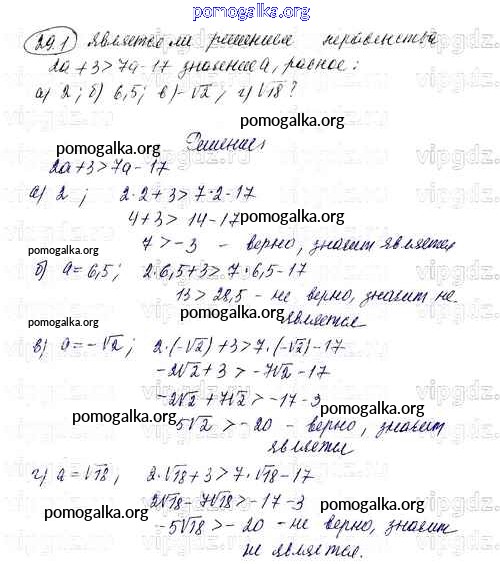 pomogalka.org
29.1 Является ли решением неравенства
2a+3>7a-17 значение a, равное:
а) 2; б) 6,5; в) -√2; г) √18?
pomogalka.org pomogalka.org
Решение
2a+3>7a-17
pomogalka.org
а) 2; 2·2+3>7·2-17
4+3>14-17
pomogalka.org
7>-3 - верно, значит является
pomogalka.org
б) a=6,5; 2·6,5+3>7·6,5-17
pomogalka.org
13>28,5 - не верно, значит не
является
pomogalka.org pomogalka.org
в) a=-√2; 2·(-√2)+3>7·(-√2)-17
-2√2+3>-7√2-17
pomogalka.org
-2√2+7√2>-17-3
pomogalka.org
5√2>-20 - верно, значит
является
pomogalka.org
г) a=√18; 2·√18+3>7·√18-17
pomogalka.org
2√18-7√18>-17-3
-5√18>-20 - не верно, значит
не является.
pomogalka.org
vipgdz.ru